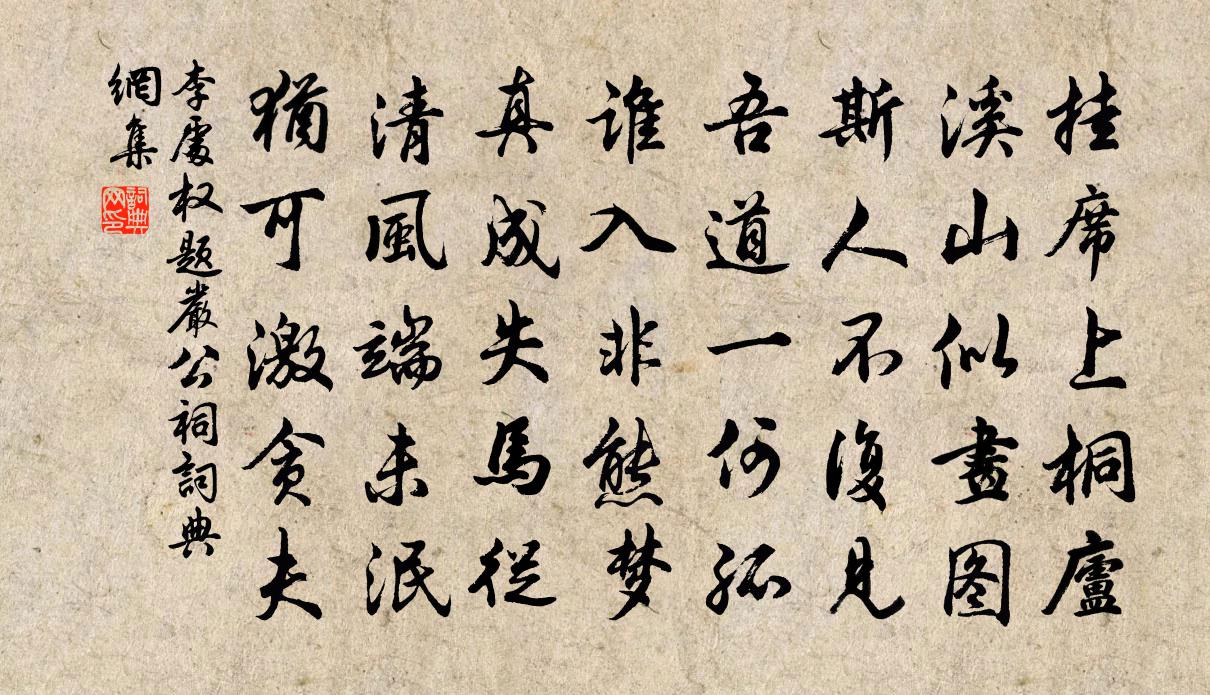 挂席上桐廬
溪山似畫图
斯人不復見
吾道一何孤
谁入非熊梦
真成失馬從
清風端未泯
猶可激贪夫
李處权题嚴公祠詞典
網集
詞典
网印